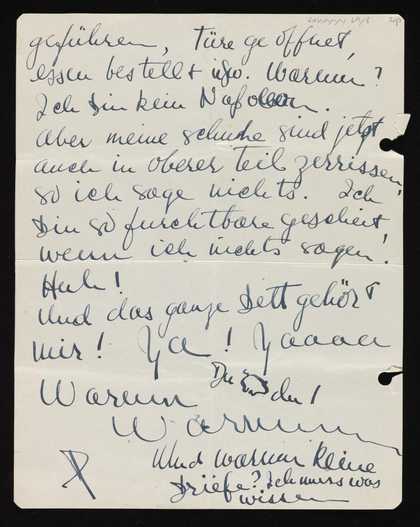 geführen, Türe geöffnet,
essen bestellt usw. Warum?
Ich bin kein Napoleon.
aber meine schuhe sind jetzt
auch in oberer teil zerrissen,
so ich sage nichts. Ich
bin so furchtbare gescheit
wenn ich nichts sagen!
Huh!
Und das ganze Bett gehört
mir! Ya! Yaaaa
Warum Du du!
Warum
Und warum keine
Briefe? Ich muss was
wissen
X